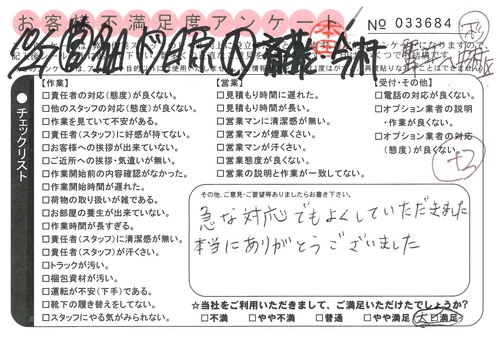 お客様不満足度アンケート
本
No 033684
チェックリスト
【作業】
□責任者の対応(態度)が良くない。
□他のスタッフの対応(態度)が良くない。
□作業を見ていて不安がある。
□責任者(スタッフ)に好感が持てない。
□お客様への挨拶が出来ていない。
□ご近所への挨拶・気遣いが無い。
□作業開始前の内容確認がなかった。
□作業開始時間が遅れた。
□荷物の取り扱いが雑である。
□お部屋の養生が出来ていない。
□作業時間が長すぎる。
□責任者(スタッフ)に清潔感が無い。
□責任者(スタッフ)が汗くさい。
□トラックが汚い。
□梱包資材が汚い。
□運転が安全(下手)である。
□靴下の履き替えをしてない。
□スタッフにやる気がみられない。
【営業】
□見積もり時間に遅れた。
□見積もり時間が長い。
□営業マンに清潔感が無い。
□営業マンが煙草くさい。
□営業マンが汗くさい。
□営業態度が良くない。
□営業の説明と作業が一致してない。
【受付・その他】
□電話の対応が良くない。
□オプション業者の説明
・作業が良くない。
□オプション業者の対応
(態度)が良くない。
その他、ご意見・ご要望等ありましたらお書き下さい。
急な対応でもよくしていただきました
本当にありがとうございました
☆当社をご利用いただきまして、ご満足いただけたでしょうか?
□不満 □やや不満 □普通 □やや満足 大口満足